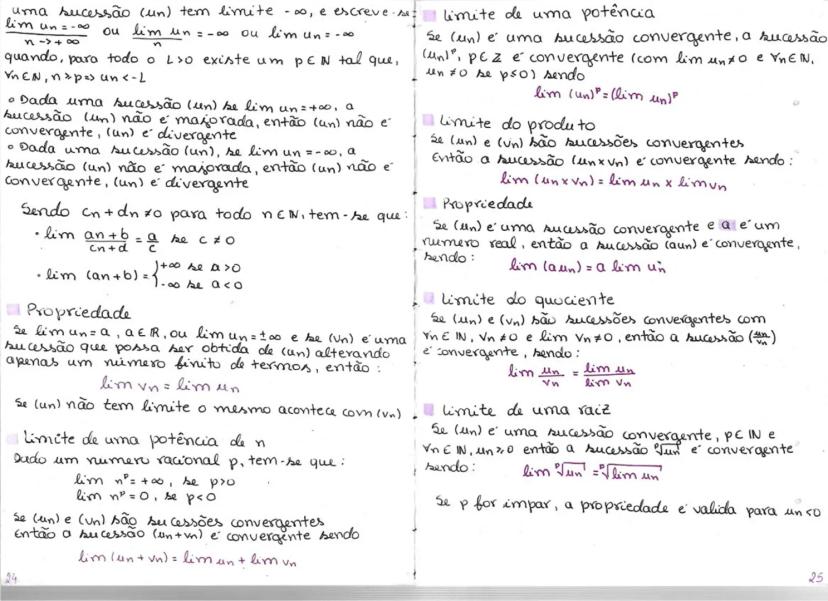 uma sucessão (un) tem limite -∞, e escreve-se
lim un = -∞ ou lim un = -∞ ou lim un = -∞
n->+∞ n
quando, para todo o L>0 existe um p∈ℕ tal que,
∀n∈ℕ, n≥p=> un<-L
• Dada uma sucessão (un) se lim un=+∞, a
sucessão (un) não é majorada, então (un) não é
convergente, (un) é divergente
• Dada uma sucessão (un), se lim un=-∞, a
sucessão (un) não é majorada, então (un) não é
convergente, (un) é divergente
Sendo cn+dn≠0 para todo n∈ℕ, tem-se que:
• lim an+b/cn+d = a/c se c≠0
• lim (an+b)={+∞ se a>0
-∞ se a<0
Propriedade
Se lim un=a, a∈ℝ, ou lim un=±∞ e se (vn) é uma
sucessão que possa ser obtida de (un) alterando
apenas um número finito de termos, então:
lim vn = lim un
Se (un) não tem limite o mesmo acontece com (vn)
Limite de uma potência de n
Dado um numero racional p, tem-se que:
lim nᵖ = +∞, se p>0
lim nᵖ = 0, se p<0
Se (un) e (vn) são sucessões convergentes
Então a sucessão (un+vn) é convergente sendo
lim (un + vn) = lim un + lim vn
24
Limite de uma potência
Se (un) é uma sucessão convergente, a sucessão
(un)ᵖ, p∈Z é convergente (com lim un≠0 e ∀n∈ℕ,
un≠0 se p≤0) sendo
lim (un)ᵖ=(lim un)ᵖ
Limite do produto
Se (un) e (vn) são sucessões convergentes
Então a sucessão (un×vn) é convergente sendo:
lim (un×vn) = lim un × lim vn
Propriedade
Se (un) é uma sucessão convergente e a é um
numero real, então a sucessão (aun) é convergente,
sendo:
lim (aun) = a lim un
Limite do quociente
Se (un) e (vn) são sucessões convergentes com
∀n∈ℕ, vn≠0 e lim vn≠0, então a sucessão (un/vn)
é convergente, sendo:
lim un/vn = lim un/lim vn
Limite de uma raiz
Se (un) é uma sucessão convergente, p∈ℕ e
∀n∈ℕ, un≥0 então a sucessão ᵖ√un é convergente
sendo: lim ᵖ√un = ᵖ√lim un
Se p for impar, a propriedade é valida para un<0
25